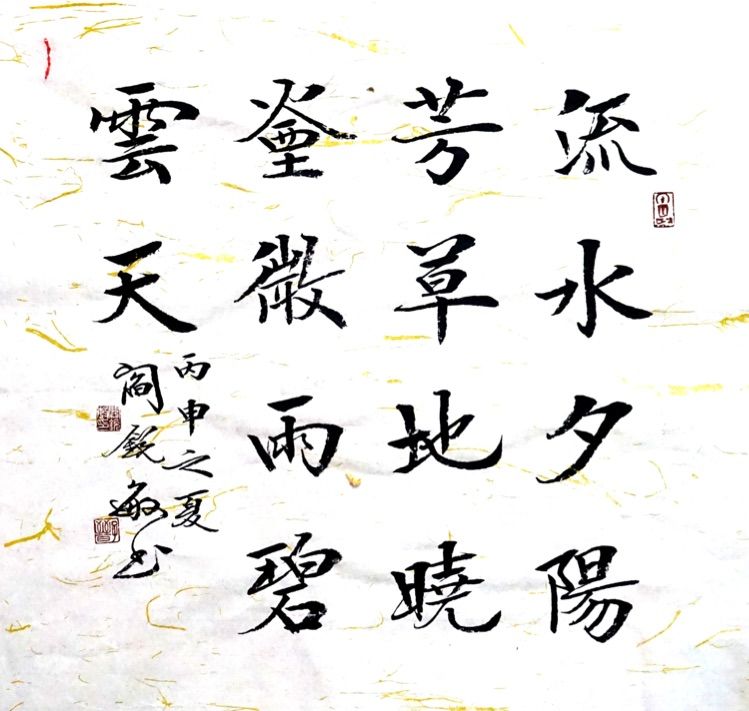 流水夕陽
芳草地曉
煙微雨碧
雲天
丙申之夏
閻鋭敏书